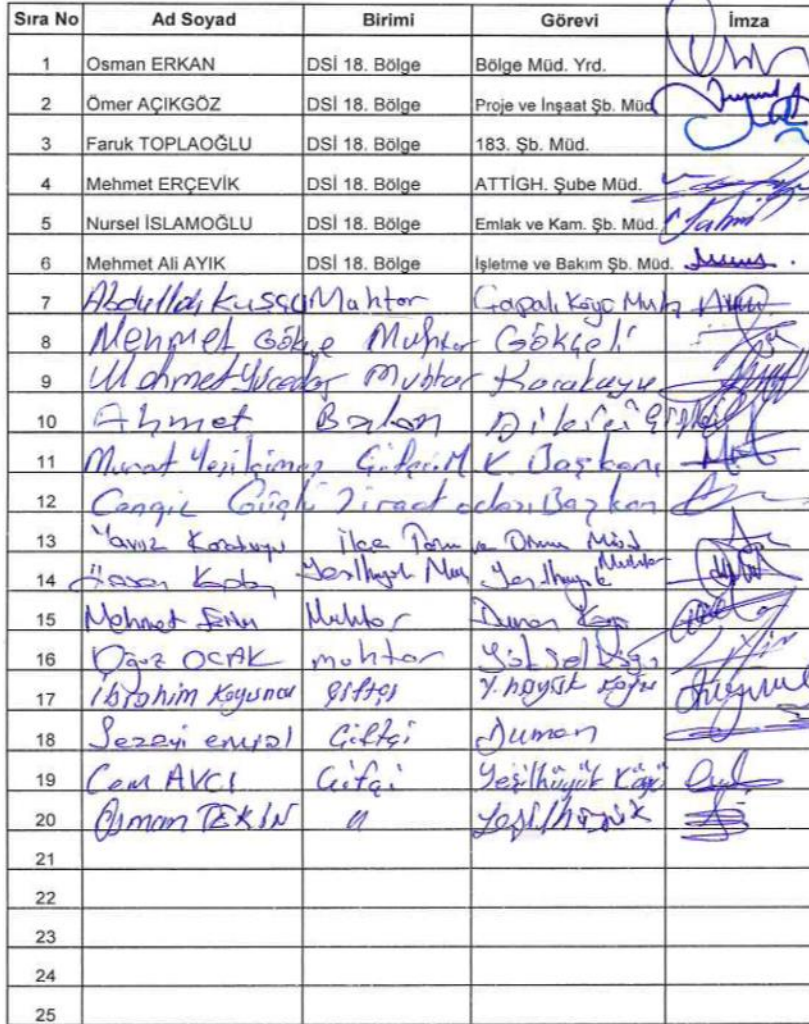 Sıra No Ad Soyad Birimi Görevi İmza
1 Osman ERKAN DSİ 18. Bölge Bölge Müd. Yrd.
2 Ömer AÇIKGÖZ DSİ 18. Bölge Proje ve İnşaat Şb. Müd
3 Faruk TOPLAOĞLU DSİ 18. Bölge 183. Şb. Müd.
4 Mehmet ERÇEVİK DSİ 18. Bölge ATTİGH. Şube Müd.
5 Nursel İSLAMOĞLU DSİ 18. Bölge Emlak ve Kam. Şb. Müd.
6 Mehmet Ali AYIK DSİ 18. Bölge İşletme ve Bakım Şb. Müd.
7 Abdullah Muhtar
8 Mehmet Gökçe Muhtar Gökçeli
9 Mehmet Muhtar
10 Ahmet
11 Murat K. Başkanı
12 Cengiz Güçlü Ziraat odası Başkan
13 Yavuz İlçe Tarım ve Orman Müd
14 Hasan Kaplan Yeşilhüyük Muh Yeşilhüyük Muhtar
15 Mehmet Muhtar Duman
16 Oğuz OCAK muhtar
17 İbrahim Koyuncu Çiftçi Y. höyük
18 Sezayi Çiftçi Duman
19 Cem AVCI Çifçi Yeşilhüyük Köyü
20 Osman TEKİN " Yeşilhöyük
21
22
23
24
25